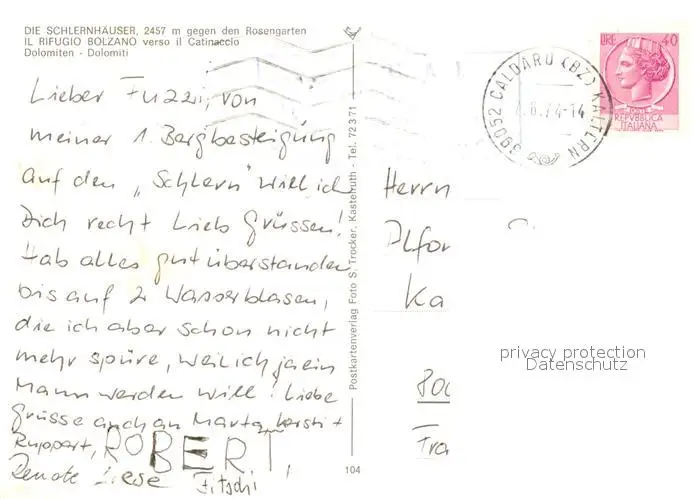 DIE SCHLERNHÄUSER, 2457 m gegen den Rosengarten
IL RIFUGIO BOLZANO verso il Catinaccio
Dolomiten - Dolomiti
Lieber Fuzzi, von
meiner 1. Bergbesteigung
auf den „Schlern" will ich
Dich recht lieb grüssen!
Hab alles gut überstanden
bis auf 2 Wasserblasen,
die ich aber schon nicht
mehr spüre, weil ich ja ein
Mann werden will! Liebe
Grüsse auch an Marta, Kersti +
Ruppert, ROBERT,
Renate Liese Fitschi
Postkartenverlag Foto S. Trocker, Kastelruth - Tel. 72371
104
LIRE 40
REPVBBLICA
ITALIANA
39052 CALDARO (BZ) KALTERN
.8.74-14
Herrn
Alfon
Ka
800
Fra
privacy protection
Datenschutz